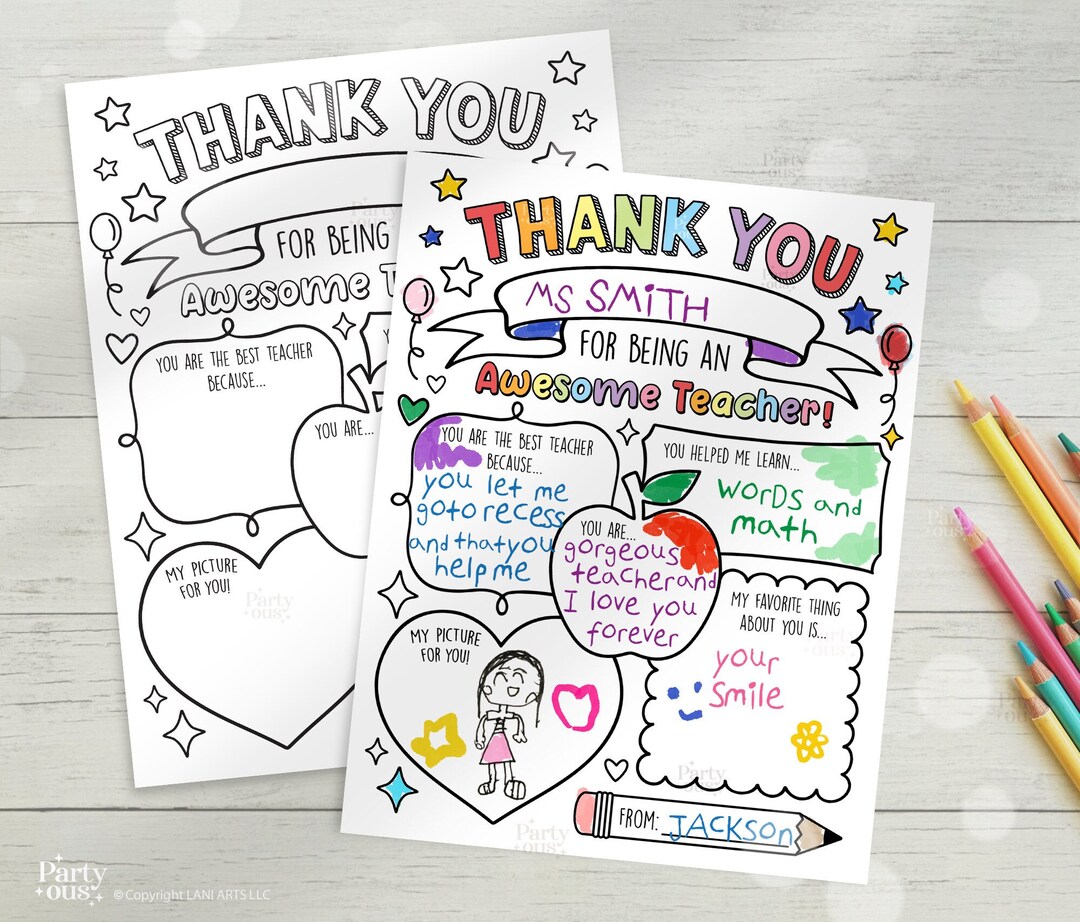 THANK YOU
FOR BEING
AWESOME T
YOU ARE THE BEST TEACHER
BECAUSE...
YOU ARE...
MY PICTURE
FOR YOU!
THANK YOU
MS SMITH
FOR BEING AN
AWESOME TEACHER!
YOU ARE THE BEST TEACHER
BECAUSE...
you let me
goto recess
and thatyou
help me
YOU HELPED ME LEARN...
worDs and
math
YOU ARE...
gorgeous
teacherand
I love you
forever
MY FAVORITE THING
ABOUT YOU IS...
your
Smile
MY PICTURE
FOR YOU!
FROM: JACKSon
Party
ous
© Copyright LANI ARTS LLC